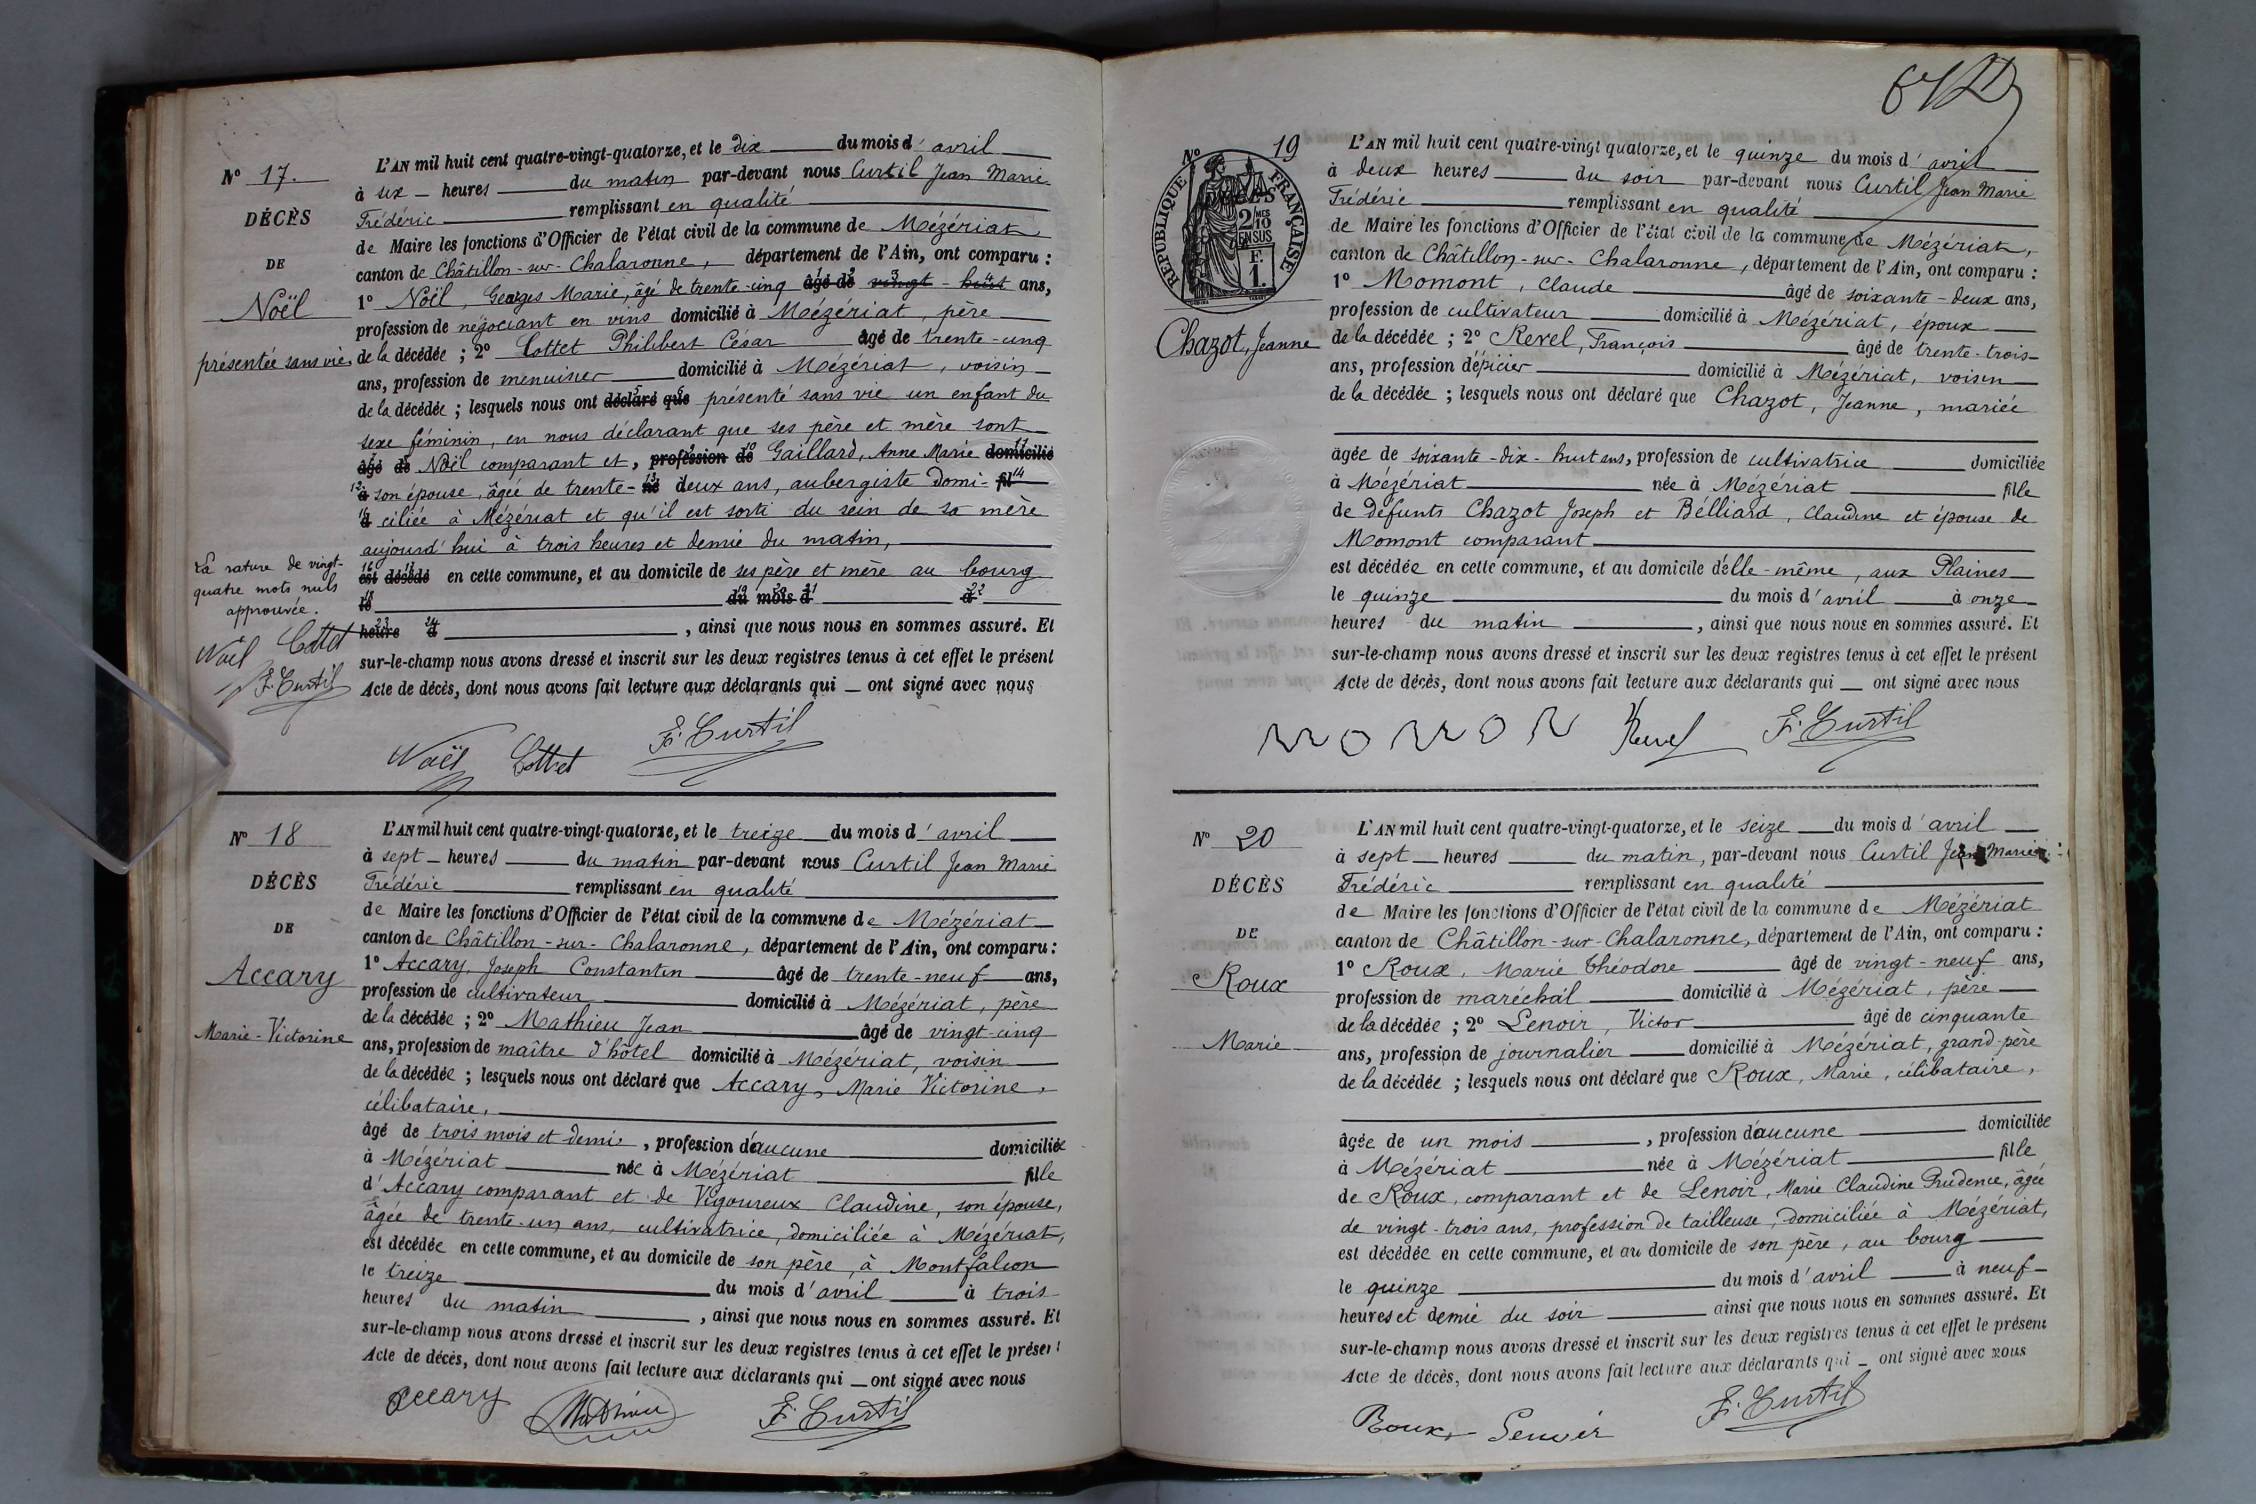 N° 17.
DÉCÈS
DE
Noël
présentée sans vie
L'AN mil huit cent quatre-vingt-quatorze, et le dix du mois d'avril
à six heures du matin par-devant nous Curtil Jean Marie
Frédéric remplissant en qualité
de Maire les fonctions d'Officier de l'état civil de la commune de Mézériat,
canton de Châtillon-sur-Chalaronne, département de l'Ain, ont comparu :
1° Noël, Georges Marie, âgé de trente-cinq âgé de vingt-huit ans,
profession de négociant en vins domicilié à Mézériat, père
de la décédée ; 2° Cottet Philibert César âgé de trente-cinq
ans, profession de menuisier domicilié à Mézériat, voisin
de la décédée ; lesquels nous ont déclaré que présenté sans vie un enfant du
sexe féminin, en nous déclarant que ses père et mère sont
âgé de Noël comparant et, profession de Gaillard, Anne Marie domicilié
à son épouse, âgée de trente- né deux ans, aubergiste domi- fil
à ciliée à Mézériat et qu'il est sorti du sein de sa mère
aujourd'hui à trois heures et demie du matin,
est décédé en cette commune, et au domicile de ses père et mère au bourg
le du mois d' à
heure d , ainsi que nous nous en sommes assuré. Et
sur-le-champ nous avons dressé et inscrit sur les deux registres tenus à cet effet le présent
Acte de décès, dont nous avons fait lecture aux déclarants qui ont signé avec nous
La rature de vingt-
quatre mots nuls
approuvée.
Noël Cottet
F. Curtil
Noël Cottet F. Curtil
N° 18
DÉCÈS
DE
Accary
Marie-Victorine
L'AN mil huit cent quatre-vingt-quatorze, et le treize du mois d'avril
à sept heures du matin par-devant nous Curtil Jean Marie
Frédéric remplissant en qualité
de Maire les fonctions d'Officier de l'état civil de la commune de Mézériat
canton de Châtillon-sur-Chalaronne, département de l'Ain, ont comparu :
1° Accary, Joseph Constantin âgé de trente-neuf ans,
profession de cultivateur domicilié à Mézériat, père
de la décédée ; 2° Mathieu Jean âgé de vingt-cinq
ans, profession de maître d'hôtel domicilié à Mézériat, voisin
de la décédée ; lesquels nous ont déclaré que Accary, Marie Victorine,
célibataire,
âgé de trois mois et demi, profession d'aucune domiciliée
à Mézériat née à Mézériat fille
d'Accary comparant et de Vigoureux Claudine, son épouse,
âgée de trente-un ans, cultivatrice, domiciliée à Mézériat,
est décédée en cette commune, et au domicile de son père, à Montfalcon
le treize du mois d'avril à trois
heures du matin , ainsi que nous nous en sommes assuré. Et
sur-le-champ nous avons dressé et inscrit sur les deux registres tenus à cet effet le présent
Acte de décès, dont nous avons fait lecture aux déclarants qui ont signé avec nous
Accary Mathieu F. Curtil
N° 19
RÉPUBLIQUE FRANÇAISE
2/10 EN SUS
F. 1.
DÉCÈS
Chazot, Jeanne
L'AN mil huit cent quatre-vingt quatorze, et le quinze du mois d'avril
à deux heures du soir par-devant nous Curtil Jean Marie
Frédéric remplissant en qualité
de Maire les fonctions d'Officier de l'état civil de la commune de Mézériat,
canton de Châtillon-sur-Chalaronne, département de l'Ain, ont comparu :
1° Momont, Claude âgé de soixante-deux ans,
profession de cultivateur domicilié à Mézériat, époux
de la décédée ; 2° Revel, François âgé de trente-trois
ans, profession d'épicier domicilié à Mézériat, voisin
de la décédée ; lesquels nous ont déclaré que Chazot, Jeanne, mariée
âgée de soixante-dix-huit ans, profession de cultivatrice domiciliée
à Mézériat née à Mézériat fille
de défunts Chazot Joseph et Bélliard, Claudine et épouse de
Momont comparant
est décédée en cette commune, et au domicile d'elle-même, aux Plaines
le quinze du mois d'avril à onze
heures du matin , ainsi que nous nous en sommes assuré. Et
sur-le-champ nous avons dressé et inscrit sur les deux registres tenus à cet effet le présent
Acte de décès, dont nous avons fait lecture aux déclarants qui ont signé avec nous
MOMON Revel F. Curtil
N° 20
DÉCÈS
DE
Roux
Marie
L'AN mil huit cent quatre-vingt-quatorze, et le seize du mois d'avril
à sept heures du matin, par-devant nous Curtil Jean Marie
Frédéric remplissant en qualité
de Maire les fonctions d'Officier de l'état civil de la commune de Mézériat
canton de Châtillon-sur-Chalaronne, département de l'Ain, ont comparu :
1° Roux, Marie Théodore âgé de vingt-neuf ans,
profession de maréchal domicilié à Mézériat, père
de la décédée ; 2° Lenoir, Victor âgé de cinquante
ans, profession de journalier domicilié à Mézériat, grand-père
de la décédée ; lesquels nous ont déclaré que Roux, Marie, célibataire,
âgée de un mois , profession d'aucune domiciliée
à Mézériat née à Mézériat fille
de Roux, comparant et de Lenoir, Marie Claudine Prudence, âgée
de vingt-trois ans, profession de tailleuse, domiciliée à Mézériat,
est décédée en cette commune, et au domicile de son père, au bourg
le quinze du mois d'avril à neuf
heures et demie du soir ainsi que nous nous en sommes assuré. Et
sur-le-champ nous avons dressé et inscrit sur les deux registres tenus à cet effet le présent
Acte de décès, dont nous avons fait lecture aux déclarants qui ont signé avec nous
Roux Lenoir F. Curtil